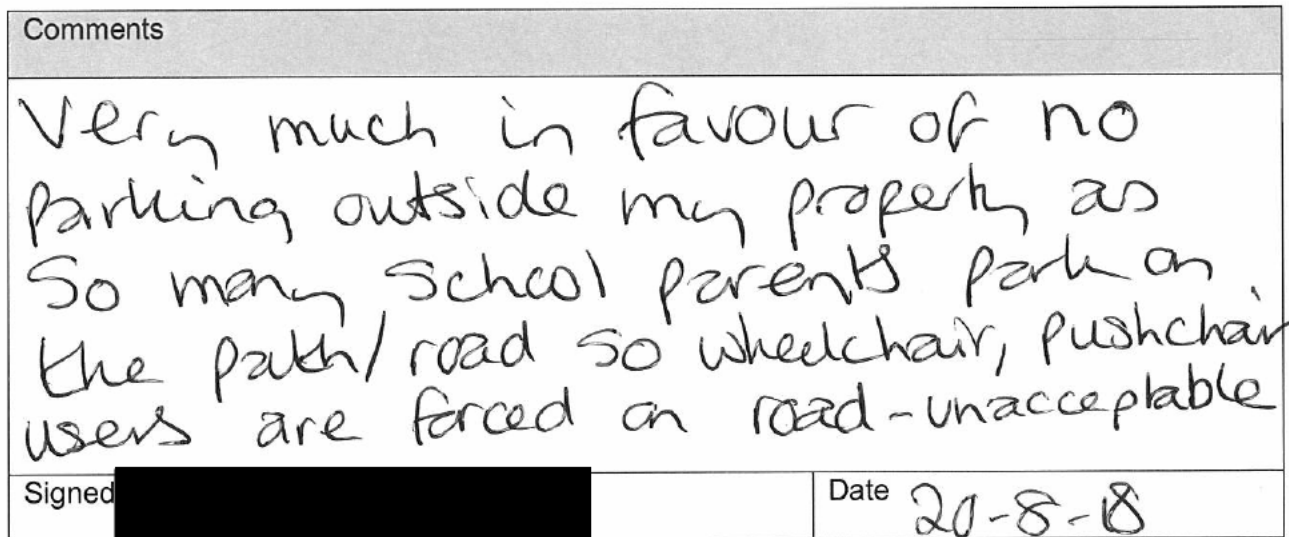 Comments
Very much in favour of no
parking outside my property as
So many school parents park on
the path/road so wheelchair, pushchair
users are forced on road-unacceptable
Signed
Date 20-8-18